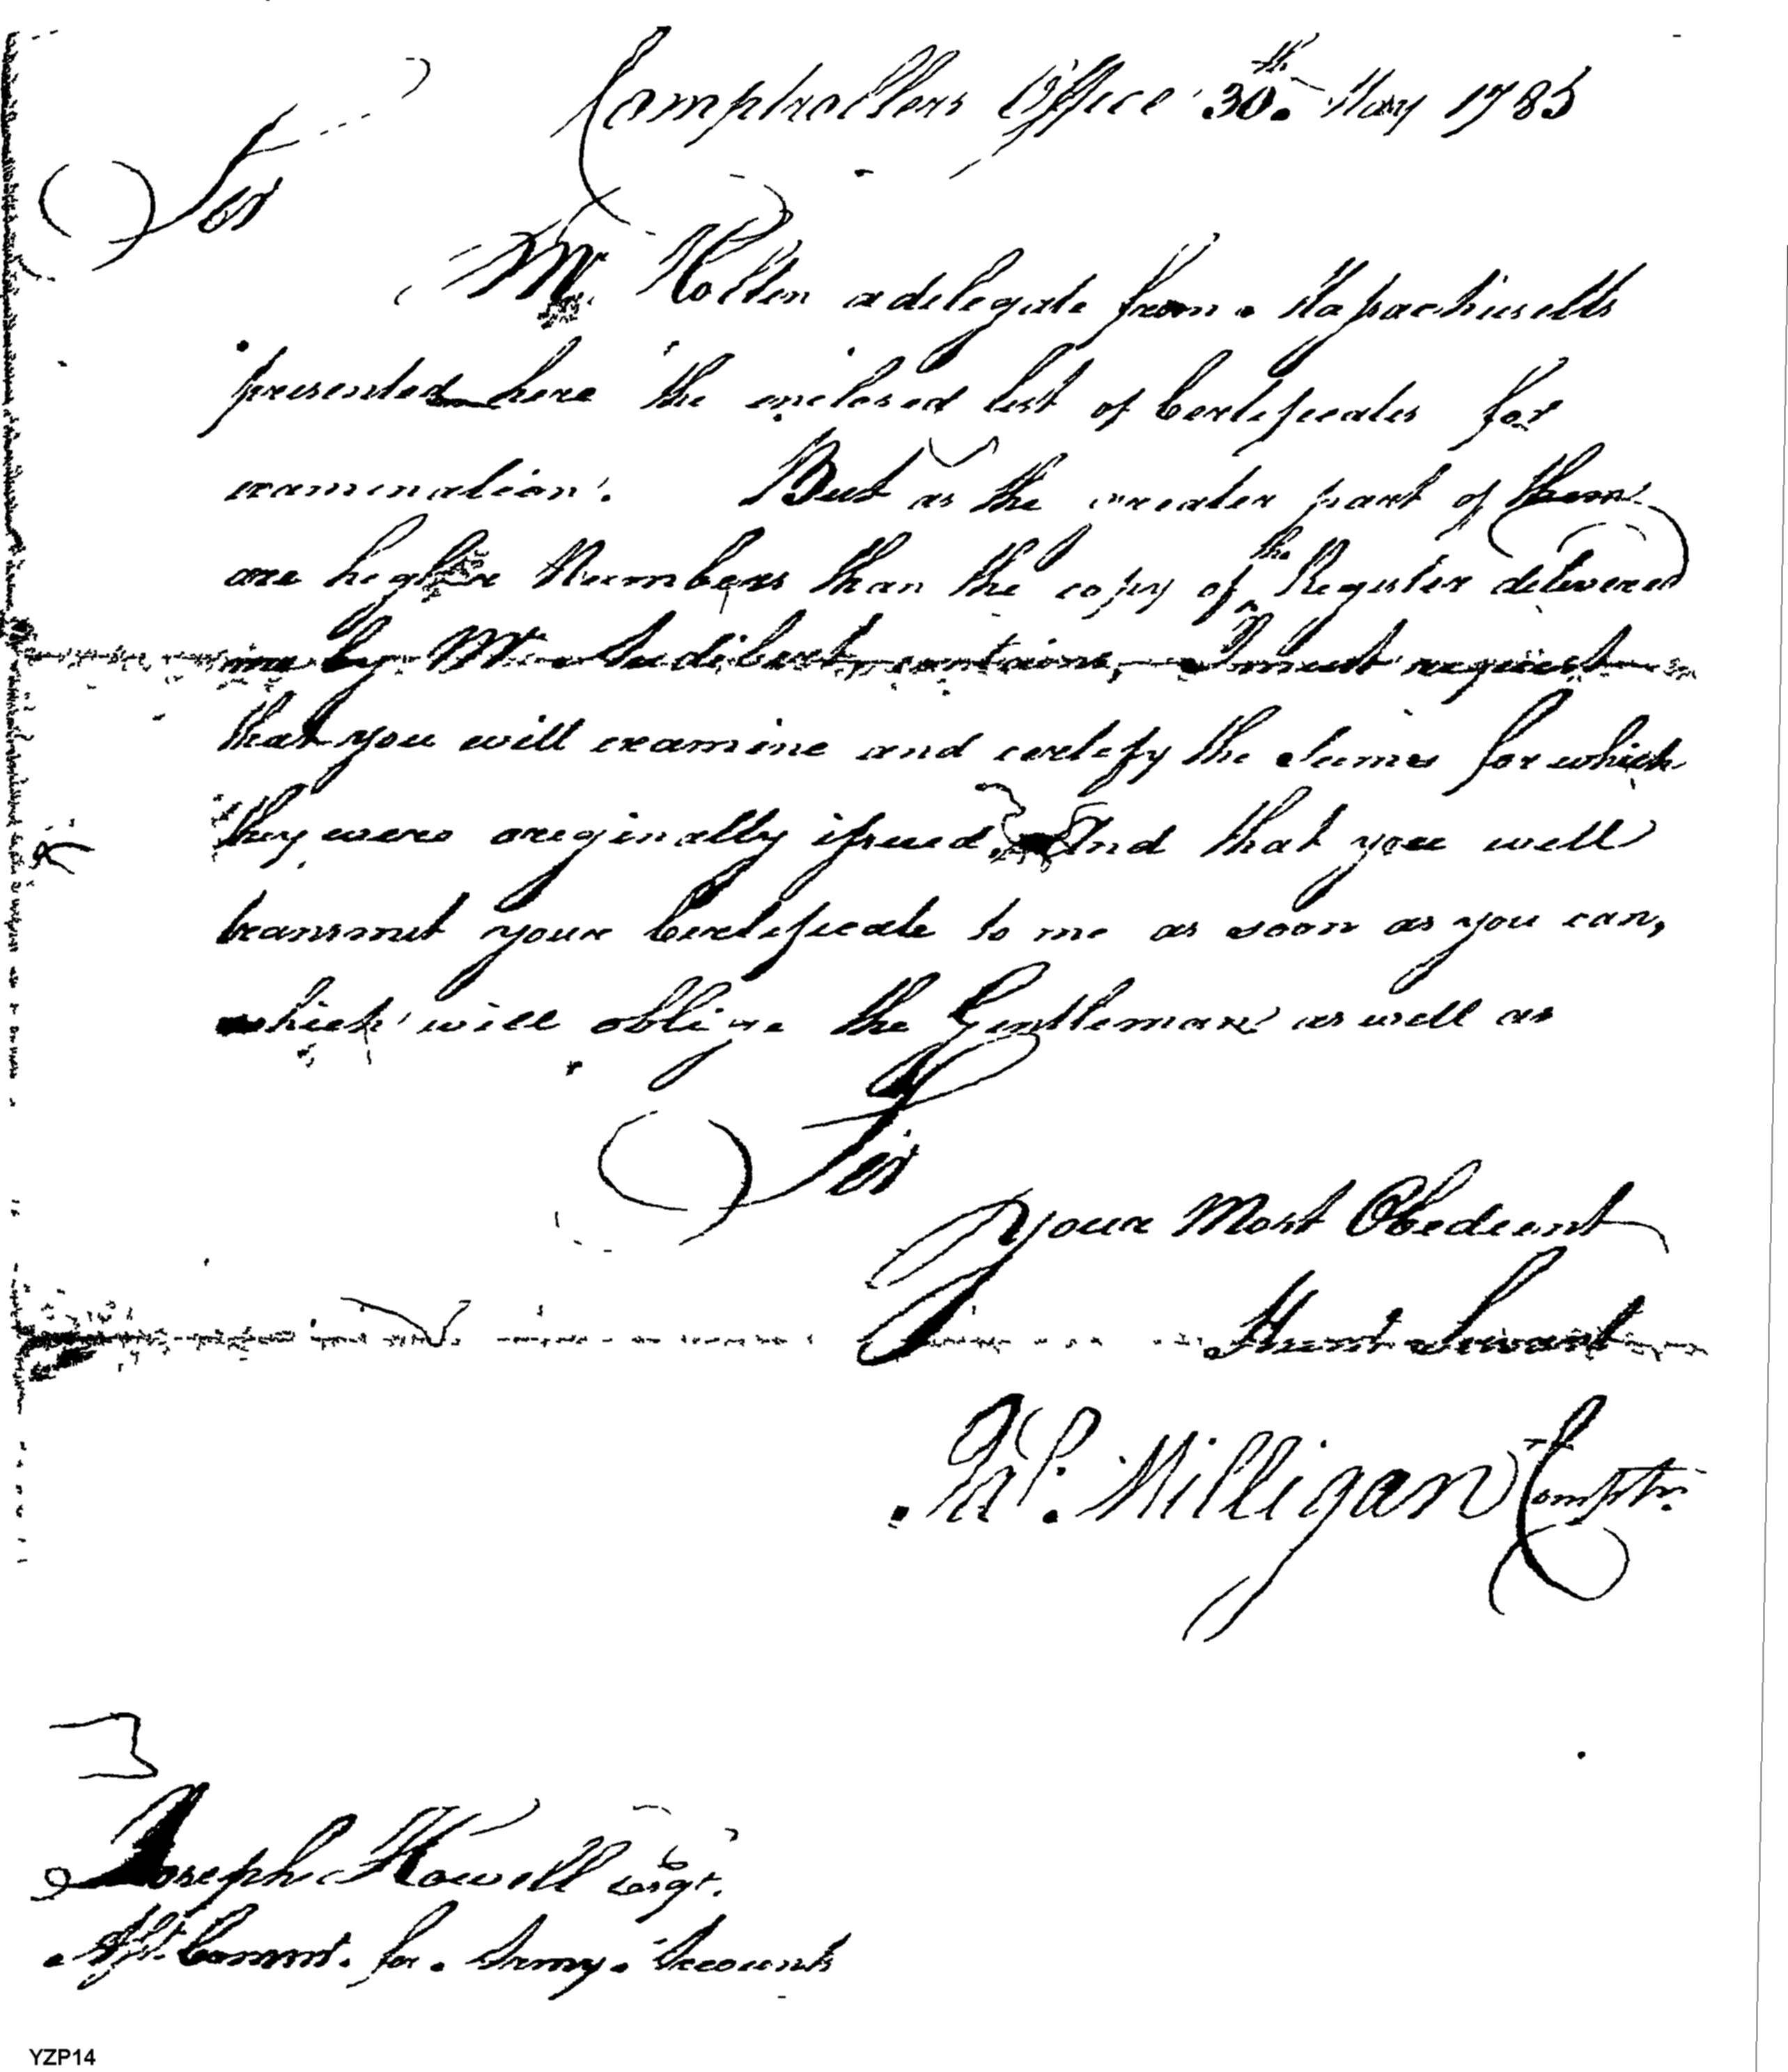 Comptrollers Office 30th May 1785
Sir
Mr Holten a delegate from Massachusetts
presented here the inclosed list of Certificates for
examination. But as the greater part of them
are higher Numbers than the copy of the Register delivered
me by Mr Audibert, contains, I must request
that you will examine and certify the Sums for which
they were originally issued, And that you will
transmit your Certificate to me as soon as you can,
which will oblige the Gentleman as well as
Sir
your Most Obedient
Humt Servant
Jas. Milligan Comptr.
Joseph Howell Esqr.
Asst. Commr. for Army Accounts
YZP14